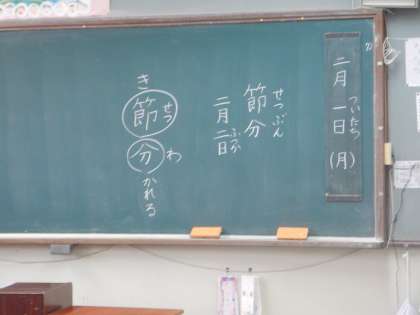 二月一日(月)
ついたち
せつぶん
節分
二月二日
ふつか
き
節
せつ
分
わ
かれる